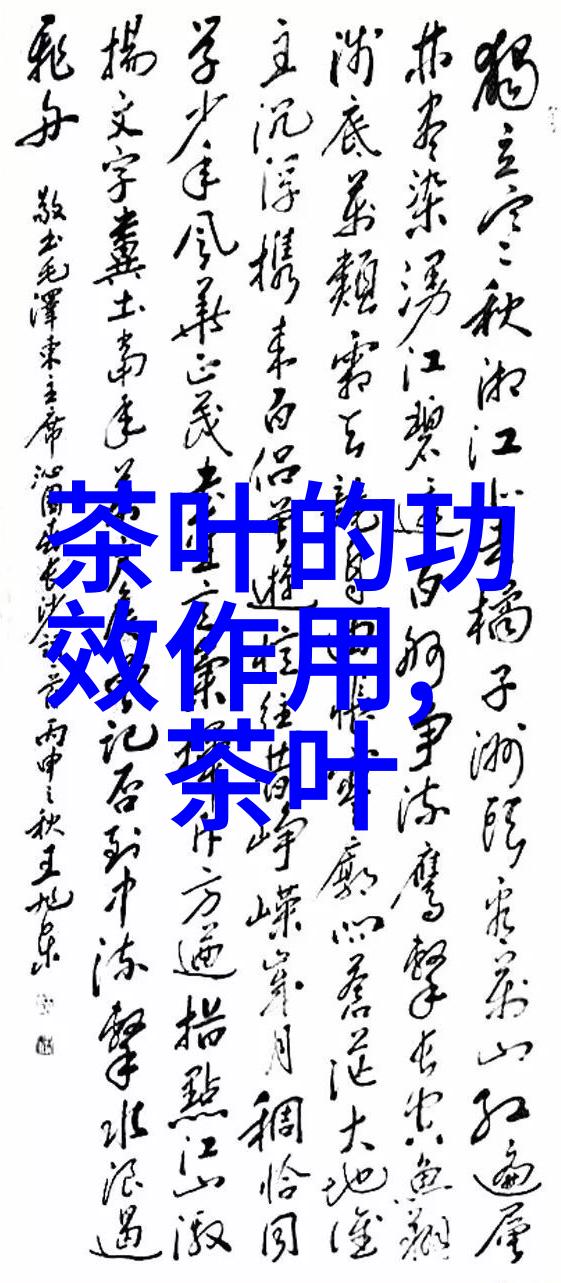 茶叶的功
效作用,
茶叶
獨立寒秋湘江北去橘子洲頭看萬山红遍層
林盡染漫江碧透百舸爭流鷹擊長空魚翔
浅底萬類霜天競自由悵寥廓問蒼茫大地誰
主沉浮携来百侣曾遊憶往昔崢嶸歲月稠恰同
学少年風華正茂書生意氣揮斥方遒指點江山激
揚文字糞土當年萬户侯曾記否到中流擊水浪遏
飛舟
敬书毛澤東主席沁園春長沙词一首丙申之秋王旭東